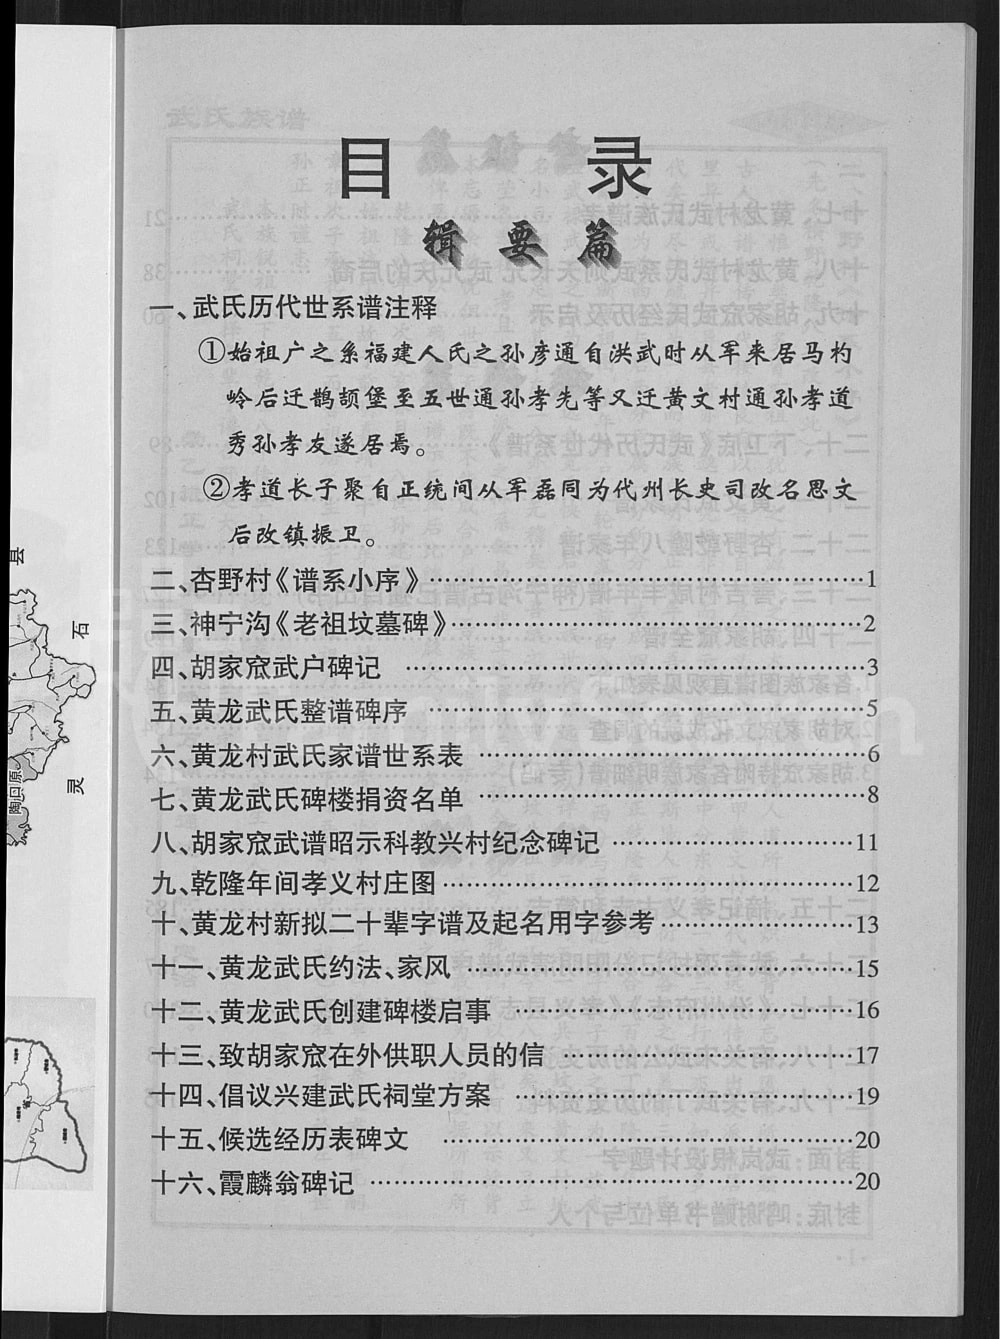 目 录
辑 要 篇
一、武氏历代世系谱注释
①始祖广之系福建人氏之孙彦通自洪武时从军来居马杓
岭后迁鹊颉堡至五世通孙孝先等又迁黄文村通孙孝道
秀孙孝友遂居焉。
②孝道长子聚自正统间从军磊同为代州长史司改名思文
后改镇振卫。
二、杏野村《谱系小序》……………………1
三、神宁沟《老祖坟墓碑》……………………2
四、胡家窊武户碑记 ……………………3
五、黄龙武氏整谱碑序 ……………………5
六、黄龙村武氏家谱世系表 …………………6
七、黄龙武氏碑楼捐资名单 …………………8
八、胡家窊武谱昭示科教兴村纪念碑记 ……………11
九、乾隆年间孝义村庄图……………………12
十、黄龙村新拟二十辈字谱及起名用字参考…………13
十一、黄龙武氏约法、家风 …………………15
十二、黄龙武氏创建碑楼启事 …………………16
十三、致胡家窊在外供职人员的信 ………………17
十四、倡议兴建武氏祠堂方案 …………………19
十五、候选经历表碑文 ……………………20
十六、霞麟翁碑记 ……………………20
县
石
灵